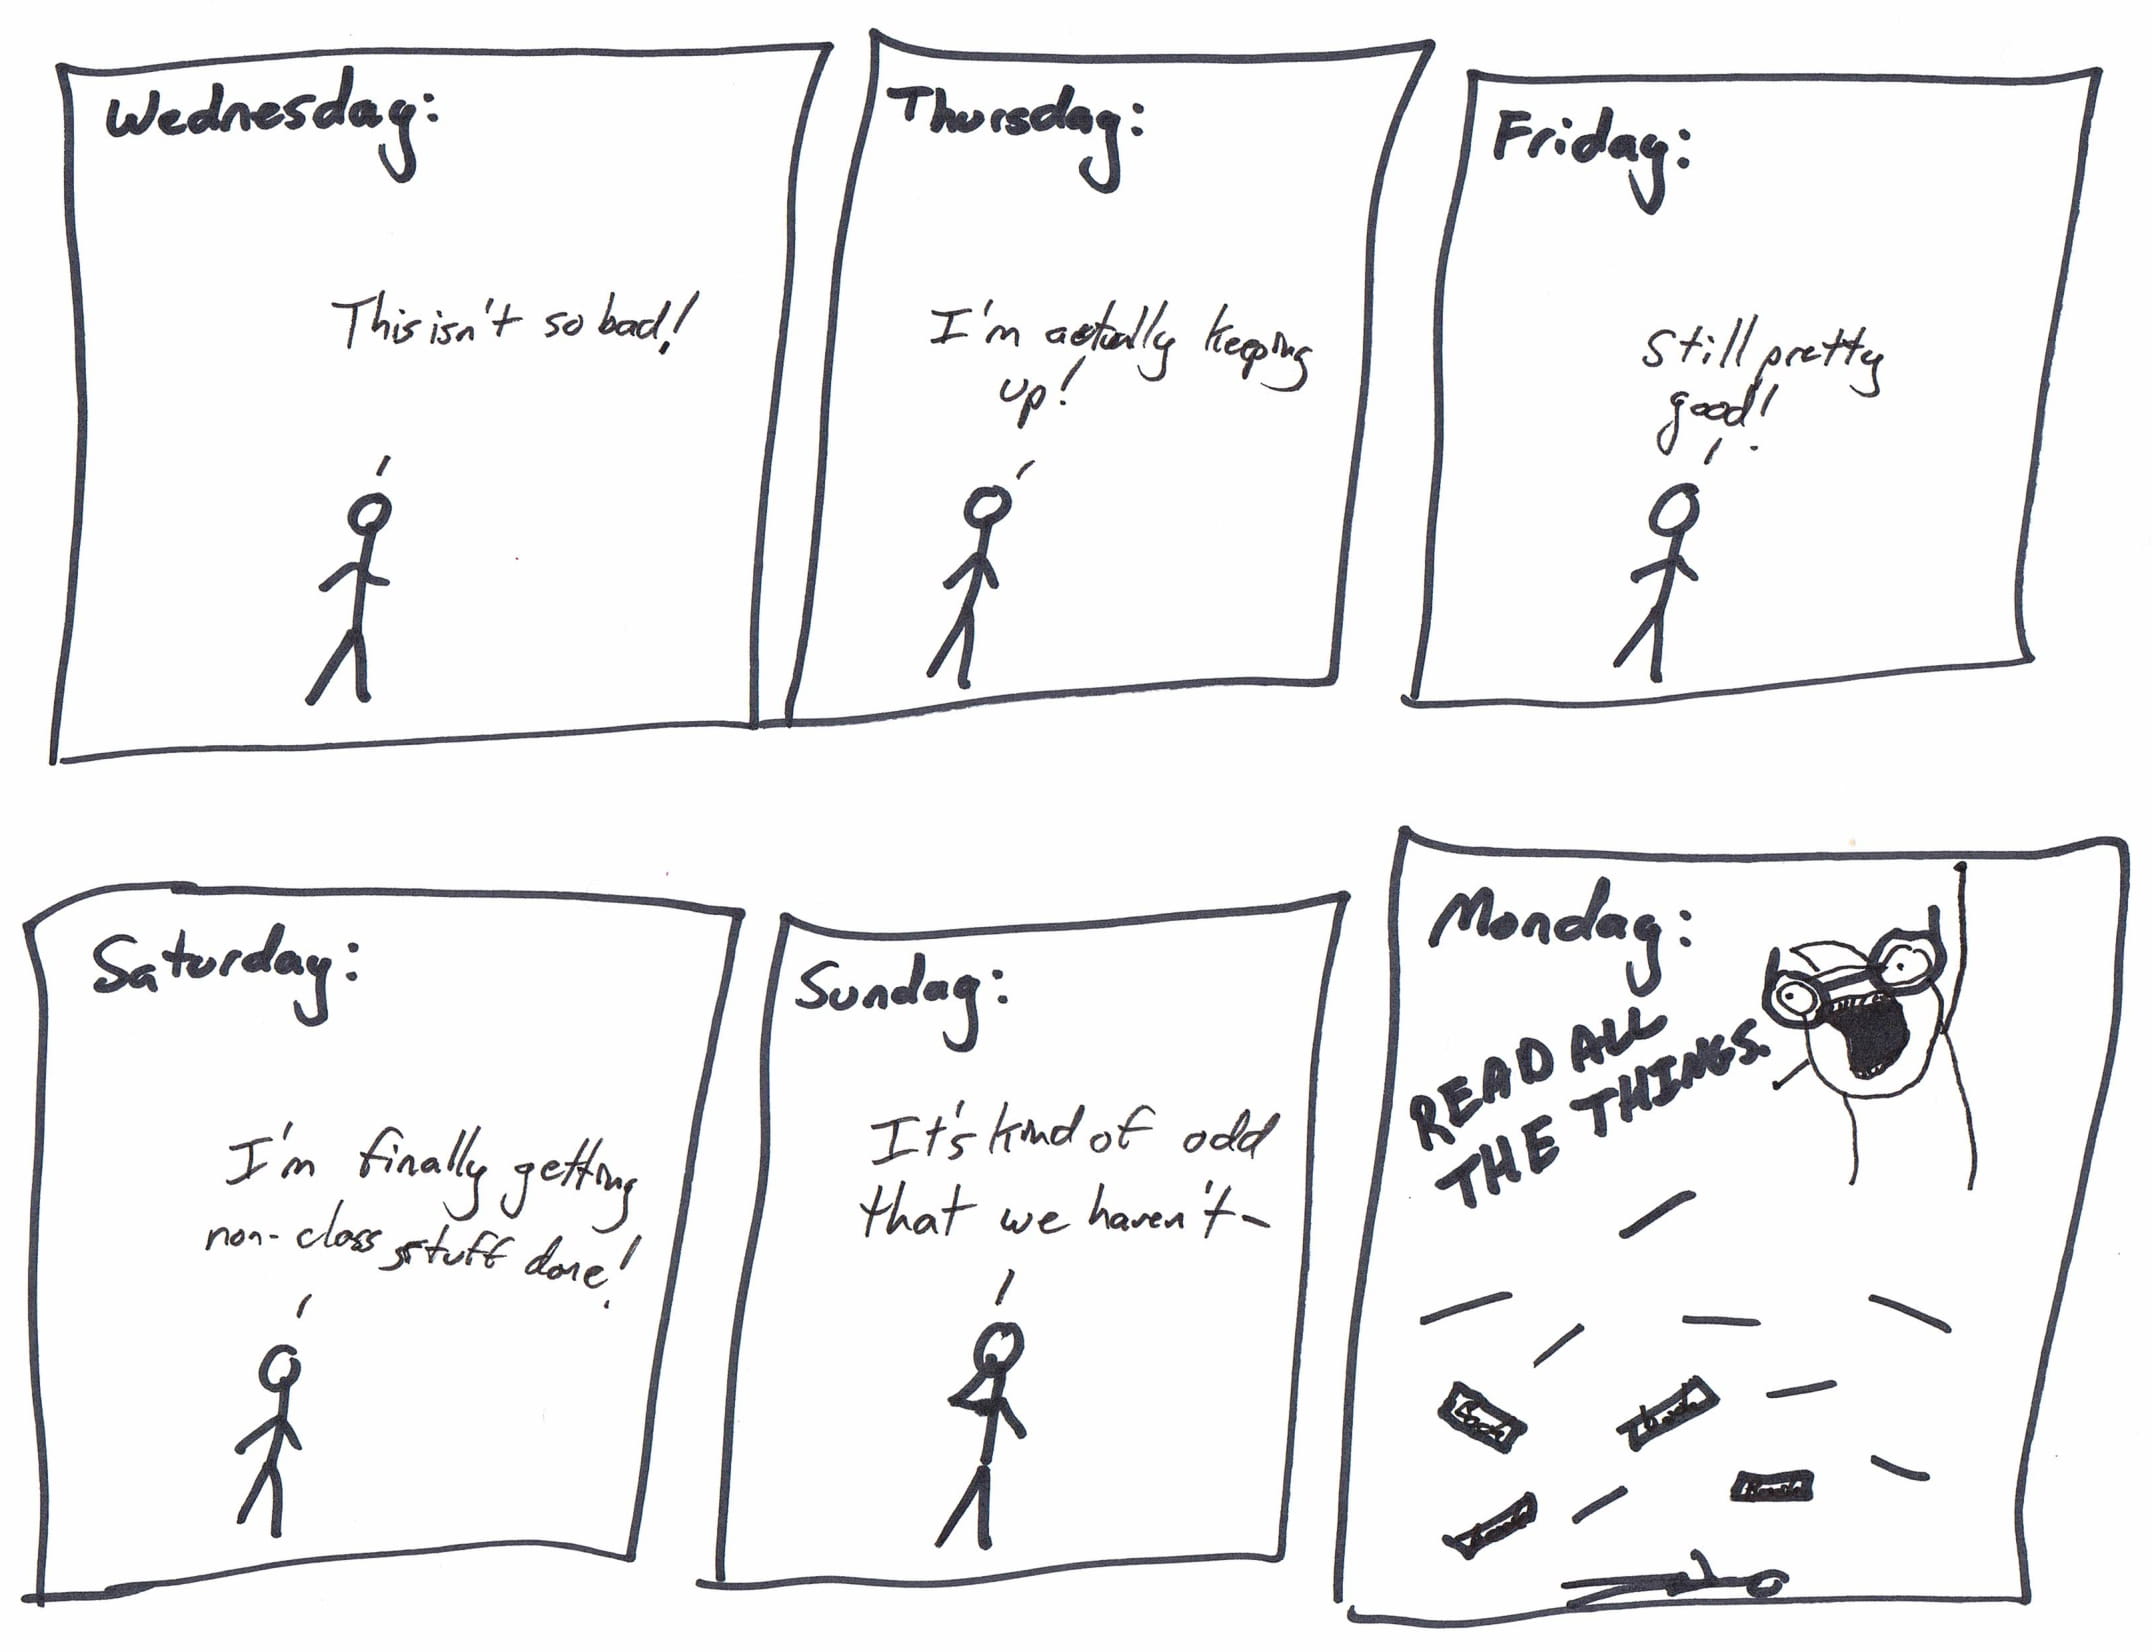 Wednesday:
This isn't so bad!
Thursday:
I'm actually keeping
up!
Friday:
Still pretty
good!
Saturday:
I'm finally getting
non-class stuff done!
Sunday:
It's kind of odd
that we haven't-
Monday:
READ ALL
THE THINGS.